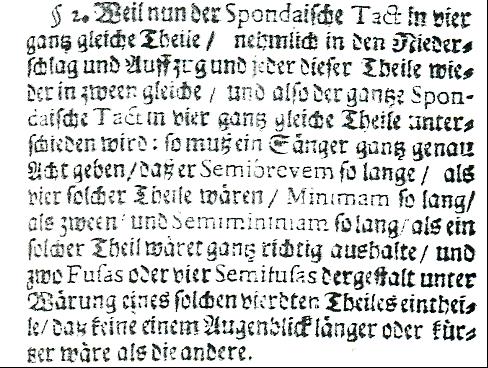 § 2. Weil nun der Spondaische Tact in vier
gantz gleiche Theile / nehmlich in den Nieder-
schlag und Auffzug und jeder dieser Theile wie-
der in zween gleiche / und also der gantze Spon-
daische Tact in vier gantz gleiche Theile unter-
schieden wird: so muß ein Sänger gantz genau
Acht geben / daß er Semibrevem so lange / als
vier solcher Theile wären / Minimam so lang /
als zween / und Semiminimam so lang / als ein
solcher Theil wäret gantz richtig aushalte / und
zwo Fusas oder vier Semifusas dergestalt unter
Wärung eines solchen vierdten Theiles einthei-
le / daß keine einem Augenblick länger oder kür-
tzer wäre als die andere.